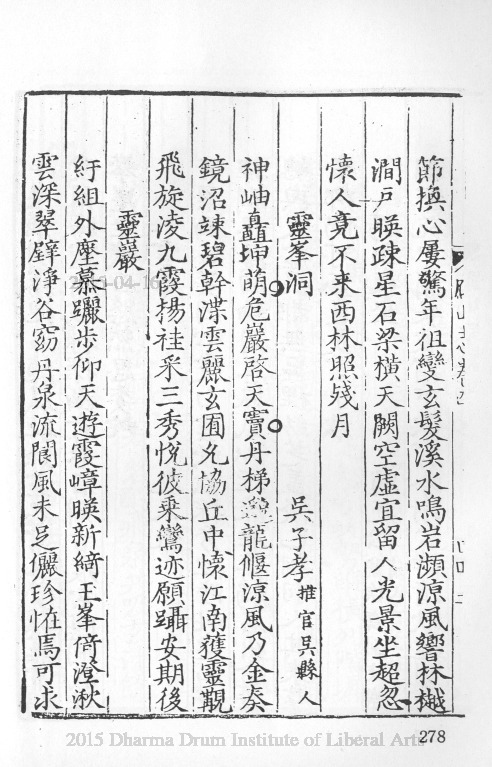 節換心屢驚年徂變玄髮溪水鳴岩瀬涼風響林樾
澗戶暎疎星石梁橫天闕空虛宜留人光景坐超忽
懷人竟不来西林照殘月
靈峯洞 吳子孝 推官吳縣人
神岫矗坤萌危巖啓天竇丹梯遶龍偃涼風乃金奏
鏡沼竦碧幹渫雲麗玄囿允協丘中懷江南獲靈覯
飛旋凌九霞揚袿采三秀悅彼乘鸞迹願躡安期後
靈巖
紆組外塵慕躧步仰天遊霞嶂暎新綺玉峯倚澄湫
雲深翠壁淨谷窈丹泉流閬風未足儷珍恠焉可求
278
2015 Dharma Drum Institute of Liberal Arts